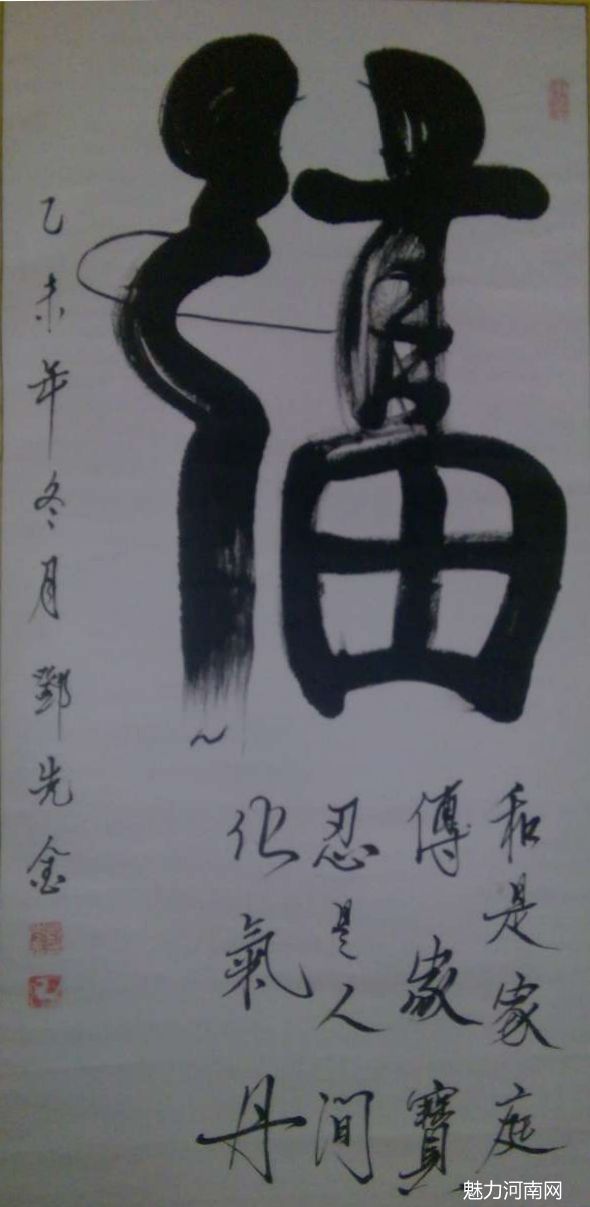 福
和是家庭
傳家寶
忍是人間
化氣丹
乙未年冬月鄧先金
魅力河南网